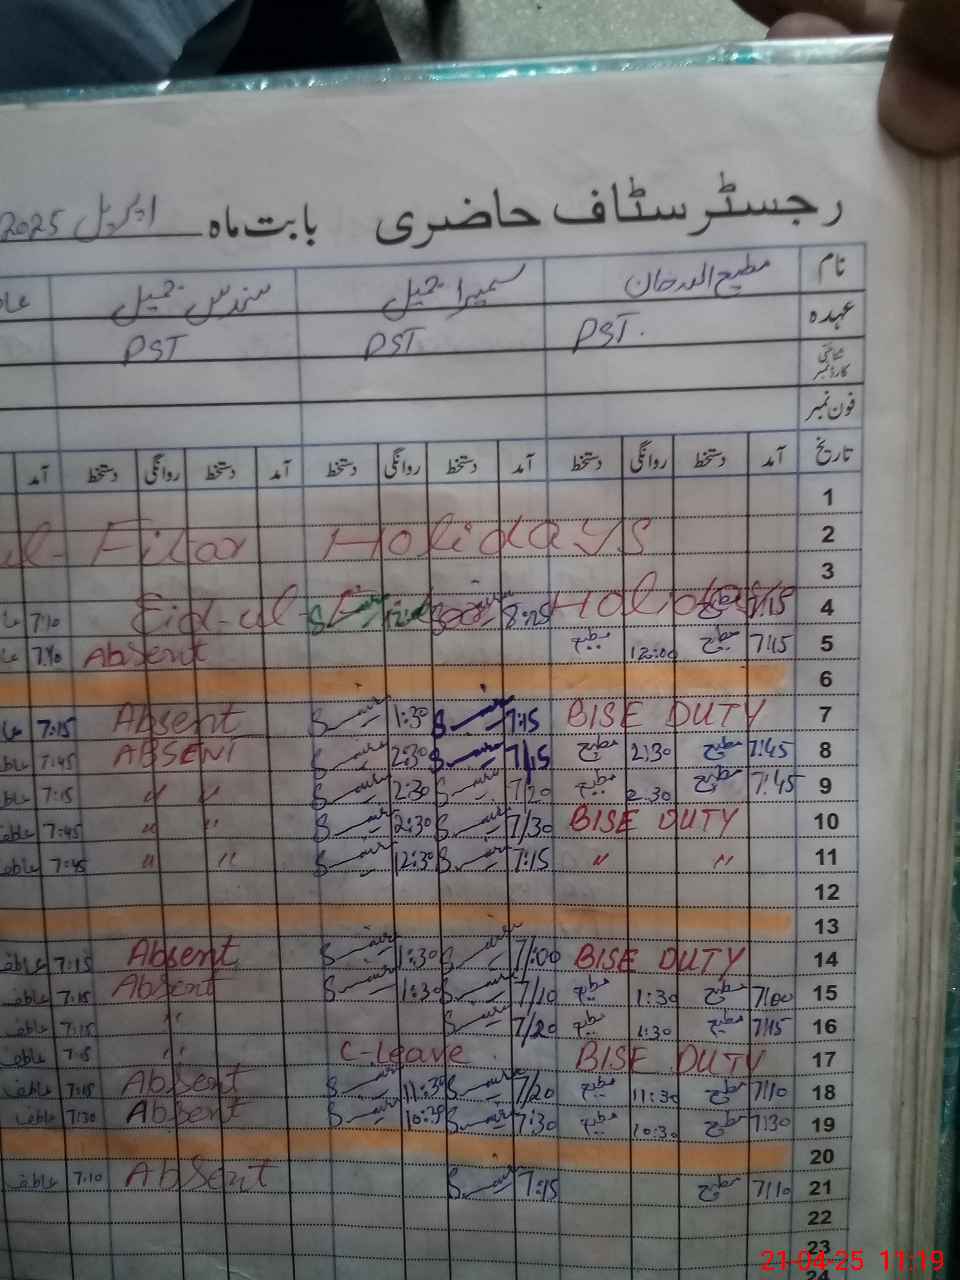 رجسٹر سٹاف حاضری بابت ماہ اپریل 2025
نام مطیع اللہ خان سمیرا جمیل سندس جمیل
عہدہ PST. PST. PST
شناختی کارڈ نمبر
فون نمبر
تاریخ آمد دستخط روانگی دستخط آمد دستخط روانگی دستخط آمد دستخط روانگی دستخط آمد
1
2 ul-Fitar Holidays
3
4 7/15 Eid-ul-Fitar Holidays 8:25 7:10
5 7/15 مطیع 12:00 مطیع Absent 7:40
6
7 BISE DUTY 7:15 1:30 Absent 7:15
8 7:45 مطیع 2:30 مطیع 7/15 2:30 ABSENT 7:45
9 7:45 مطیع 2:30 مطیع 7/20 2:30 " " 7:15
10 BISE DUTY 7/30 2:30 " " 7:45
11 " " 7:15 12:30 " " 7:45
12
13
14 BISE DUTY 7/:00 1:30 Absent 7:15 عاطف
15 7/00 مطیع 1:30 مطیع 7/10 1:30 Absent 7:15 عاطف
16 7/15 مطیع 1:30 مطیع 7/20 " 7:15 عاطف
17 BISE DUTY C-Leave " " عاطف
18 7/10 مطیع 11:30 مطیع 7/20 11:30 Absent 7:15 عاطف
19 7:30 مطیع 10:30 مطیع 7:30 10:30 Absent 7/30 عاطف
20
21 7/10 مطیع 7:15 Absent 7:10 عاطف
22
23
24
21-04-25 11:19